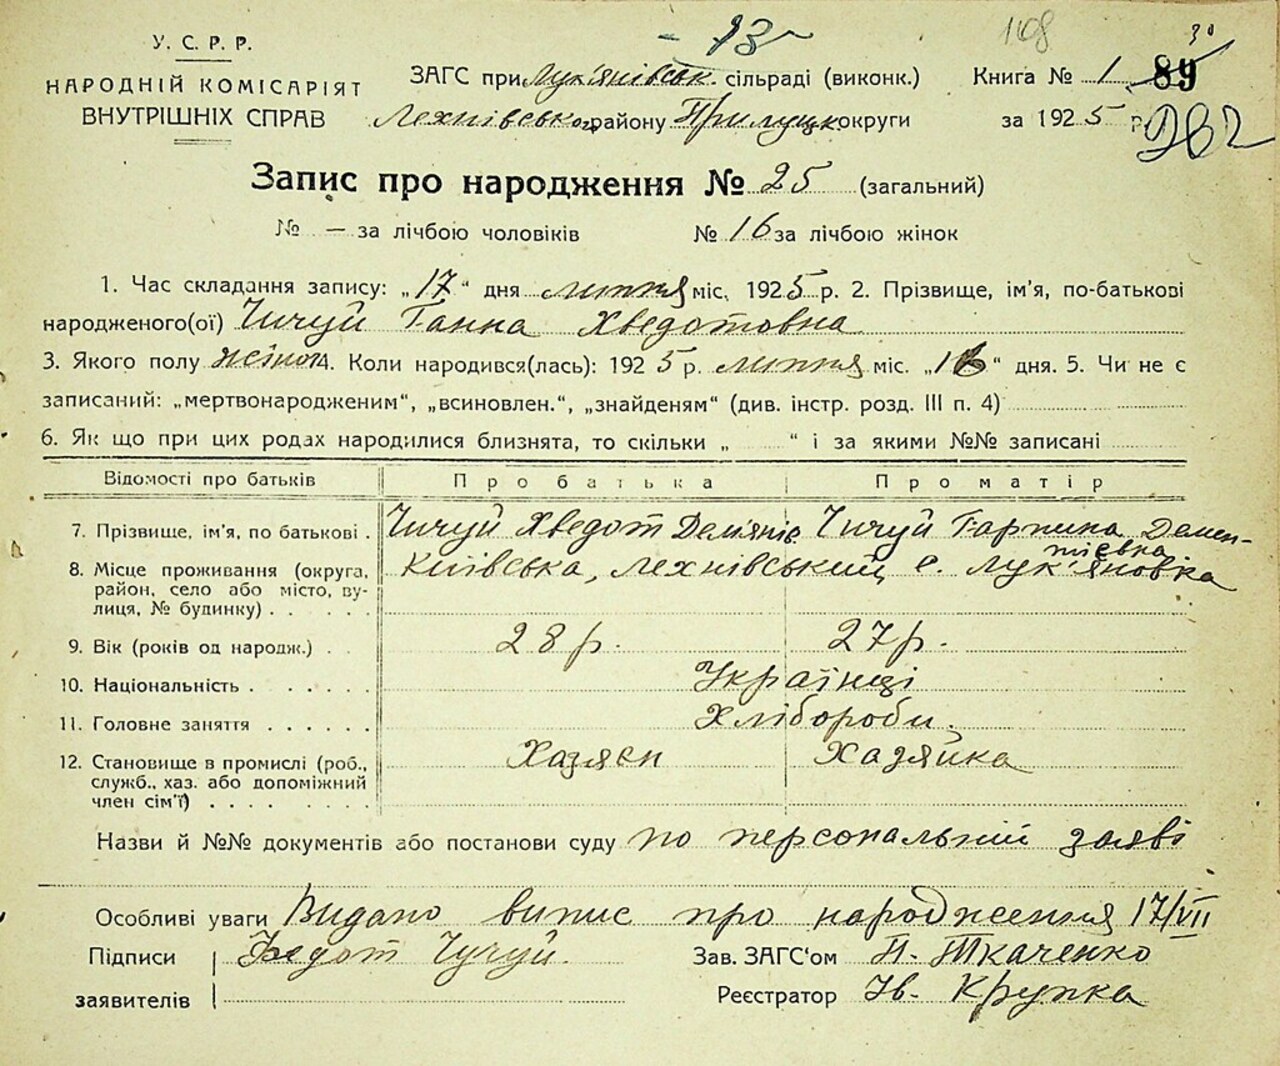 13
168
30
У. С. Р. Р.
НАРОДНІЙ КОМІСАРІЯТ
ВНУТРІШНІХ СПРАВ
ЗАГС при Лук'янівськ. сільраді (виконк.)
Лехнівського району Прилуцьк округи
Книга № 1 89
за 1925 р. 232
Запис про народження № 25 (загальний)
№ — за лічбою чоловіків № 16 за лічбою жінок
1. Час складання запису: „17“ дня липня міс. 1925 р. 2. Прізвище, ім'я, по-батькові
народженого(ої) Чичуй Ганна Хведотовна
3. Якого полу жіноч 4. Коли народився(лась): 1925 р. липня міс. „16“ дня. 5. Чи не є
записаний: „мертвонародженим“, „всиновлен.“, „знайденям“ (див. інстр. розд. III п. 4)
6. Як що при цих родах народилися близнята, то скільки „ “ і за якими №№ записані
Відомості про батьків Про батька Про матір
7. Прізвище, ім'я, по батькові . Чичуй Хведот Дем'янів Чичуй Гарпина Демен-
тієвна
8. Місце проживання (округа, Київська, Лехнівський с. Лук'яновка
район, село або місто, ву-
лиця, № будинку) . . . . .
9. Вік (років од народж.) . . 28 р. 27 р.
10. Національність . . . . . . Українці
11. Головне заняття . . . . . . Хлібороби.
12. Становище в промислі (роб., Хазяєн Хазяйка
служб., хаз. або допоміжний
член сім'ї) . . . . . . . .
Назви й №№ документів або постанови суду по персональній заяві
Особливі уваги Видано випис про народження 17/VII
Підписи Федот Чучуй. Зав. ЗАГС'ом П. Ткаченко
заявителів Реєстратор Ів. Крупка